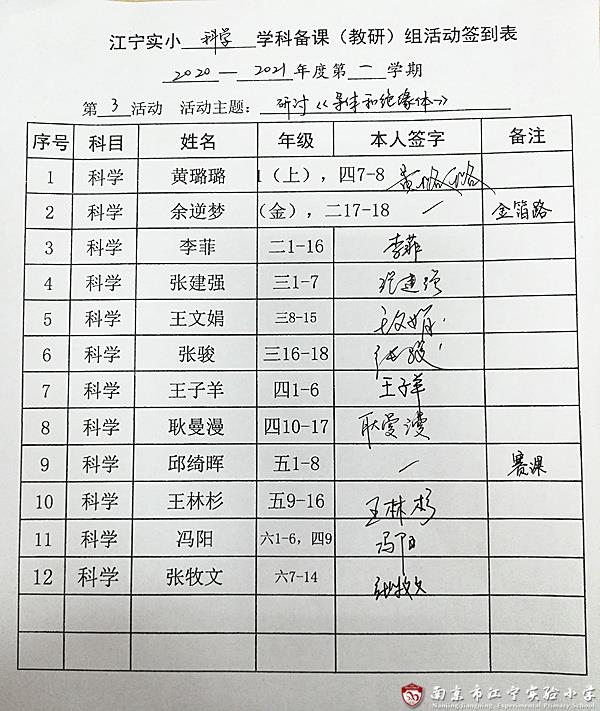 江宁实小 科学 学科备课（教研）组活动签到表
2020—2021年度第一学期
第 3 活动 活动主题：研讨《导体和绝缘体》
序号 科目 姓名 年级 本人签字 备注
1 科学 黄璐璐 1（上），四7-8 黄璐璐
2 科学 余逆梦 （金），二17-18 — 金箔路
3 科学 李菲 二1-16 李菲
4 科学 张建强 三1-7 张建强
5 科学 王文娟 三8-15 王文娟
6 科学 张骏 三16-18 张骏
7 科学 王子羊 四1-6 王子羊
8 科学 耿曼漫 四10-17 耿曼漫
9 科学 邱绮晖 五1-8 — 赛课
10 科学 王林杉 五9-16 王林杉
11 科学 冯阳 六1-6，四9 冯阳
12 科学 张牧文 六7-14 张牧文
南京市江宁实验小学
Nanjing Jiangning Experimental Primary School